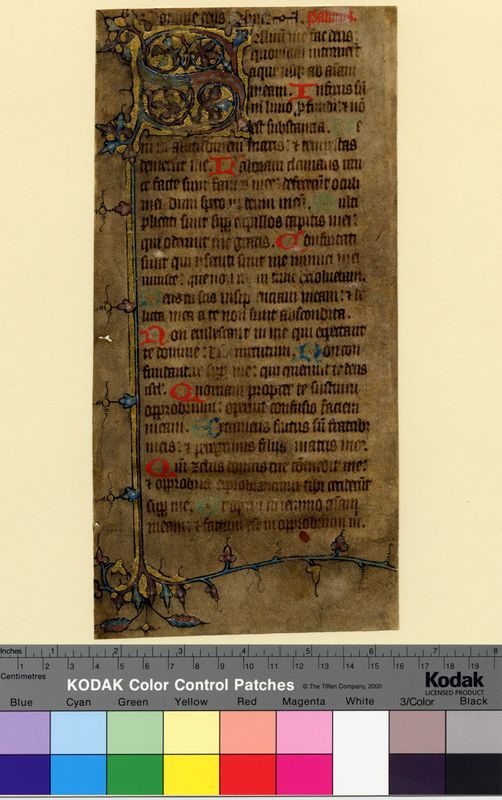 omine deus psalmus.
alvuū me fac deus:
quoniam intraverūt
aque usq; ad aīam
meam. Infixus sū
in limo profundi: & nō
est substantia. Ve
ni in altitudinem maris: & tempestas
demersit me. Laboravi clamans rau
ce facte sunt fauces mee: defecerūt oculi
mei dum spero in deum meū. Multi
plicati sunt sup capillos capitis mei:
qui oderunt me gratis. Confortati
sunt qui persecuti sunt me inimici mei
iniuste: que non rapui tunc exoluebam.
Deus tu scis insipientiam meam: & de
licta mea a te non sunt abscondita.
Non erubescant in me qui expectant
te domine: virtutum. Non con
fundantur sup me: qui querunt te deus
isrl. Quoniam propter te sustinui
opprobrium: operuit confusio faciem
meam. Extraneus factus sū fratribz
meis: & peregrinus filijs matris mee.
Qm zelus domus tue cōmedit me:
& opprobria exprobrantium tibi ceciderūt
sup me. Et operui in ieiunio aīam
meam: & factum est in opprobrium m.
Inches 1 2 3 4 5 6 7 8
Centimetres 1 2 3 4 5 6 7 8 9 10 11 12 13 14 15 16 17 18 19
KODAK Color Control Patches © The Tiffen Company, 2000 Kodak
LICENSED PRODUCT
Blue Cyan Green Yellow Red Magenta White 3/Color Black